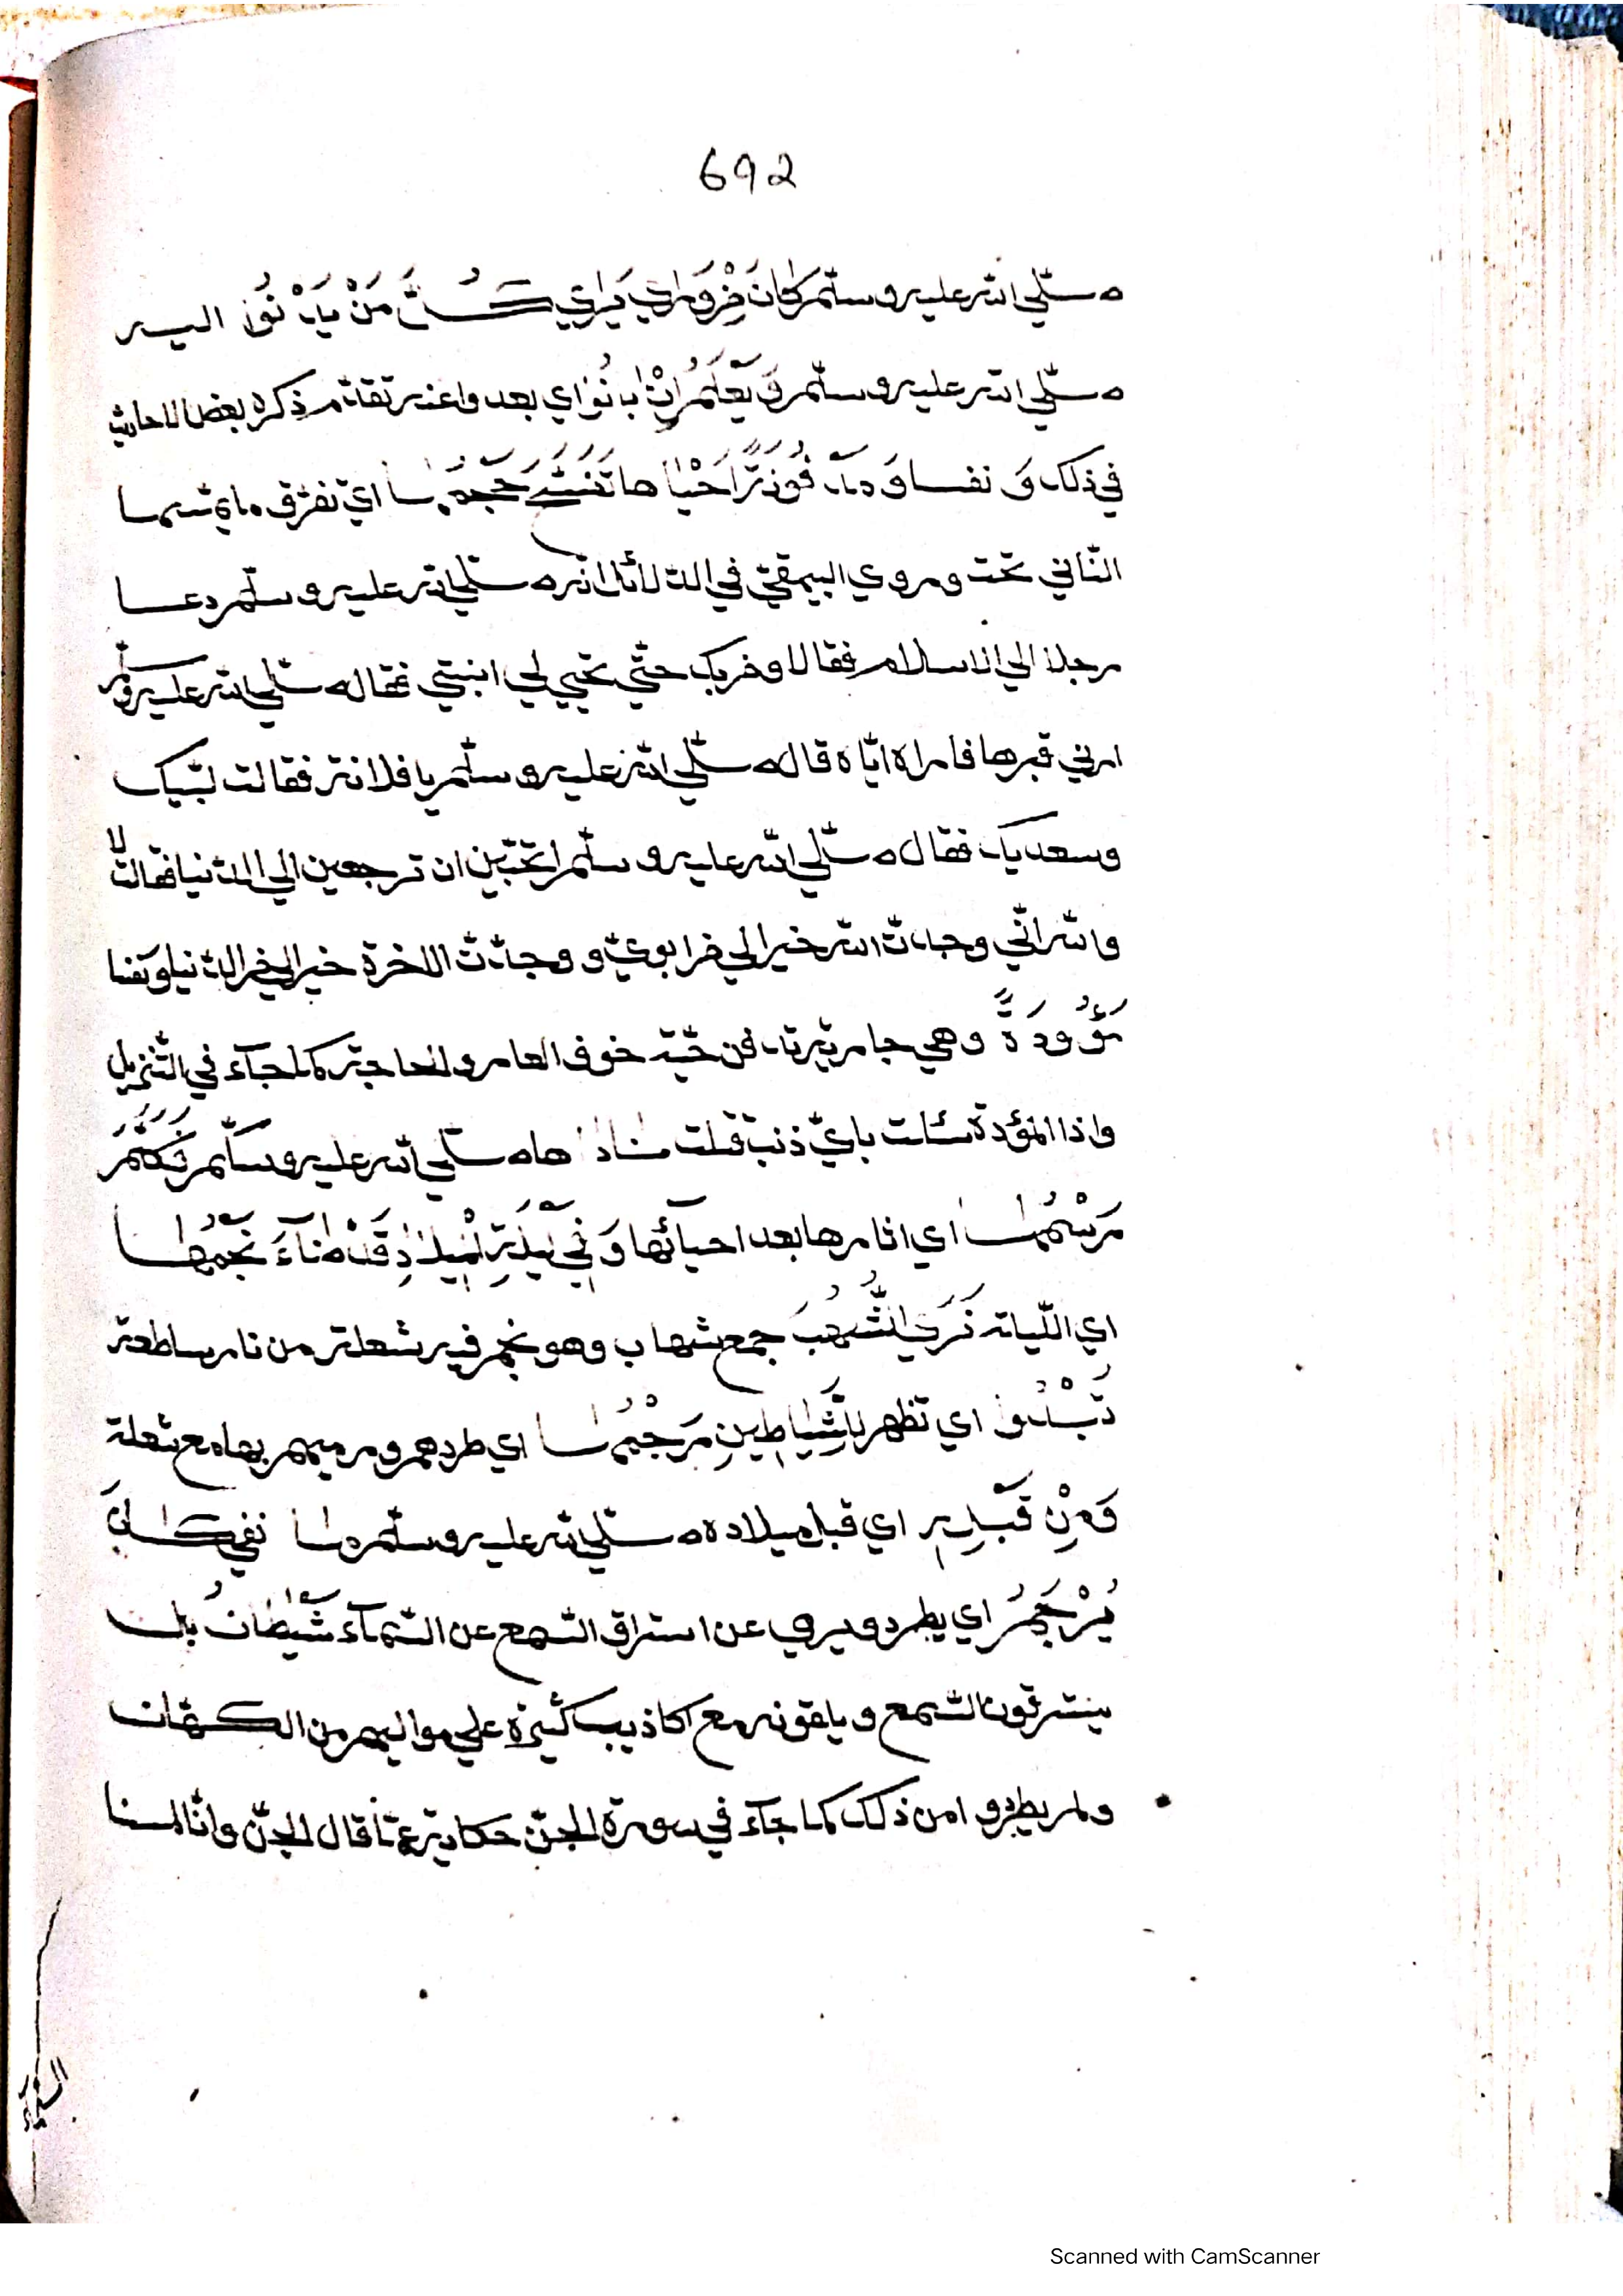 692
صلّي الله عليه وسلّم كان من وراي يراي كلّ من يدنوا اليه
صلّي الله عليه وسلّم ويعلم ان بانوا اي بعد وا عنه تقدّم ذكره بعض الاحاديث
في ذلك ونفسا احياها اي تفرّق
الثاني تحت وروي البيهقيّ في الدلائل انه صلّي الله عليه وسلّم دعا
رجلا الي الاسلام فقال لاومن بك حتّي تحيي لي ابنتي فقال صلّي الله عليه وسلّم
ارني قبرها فاراه ايّاه قال صلّي الله عليه وسلّم يا فلانة فقالت لبّيك
وسعديك فقال صلّي الله عليه وسلّم اتحبّين ان ترجعين الي الدّنيا فقالت لا
والله انّي وجدت الله خيرا لي من ابويّ ووجدّت الاخرة خيرا لي من الدّنيا ونفسا
مَوْؤُدَةً وهي جارية تدفن حيّة خوف العار والحاجة كما جآء في التّنزيل
واذا المؤدة سئلت بايّ ذنب قتلت ناداها صلّي الله عليه وسلّم فكلّم
رسمها اي اثارها بعد احيآئها وَفِي لَيْلَةِ الْمِيلَادِ قَدْ ضَآءَ نَجْمُهَا
اي اللّيلة نَرَي الشُّهُبَ جمع شهاب وهو نجم فيه شعلة من نار ساطعة
تَبْدُوا اي تظهر بِالشَّيَاطِينِ رَجْمُهَا اي طردهم ورميهم بها مع شعلة
وَمِنْ قَبْلِهِ اي قبل ميلاده صلّي الله عليه وسلّم ما نفي كان
يُرْجَمُ اي يطرد ويرمي عن استراق السّمع عن السّمآء شَيْطَانُ بل
يسترقون السّمع ويلقونه مع اكاذيب كثيرة علي مواليهم من الكهّان
ولم يطردوا من ذلك كما جآء في سورة الجنّ حكاية عمّا قال الجنّ وانّا لمسنا
السّمآء
Scanned with CamScanner